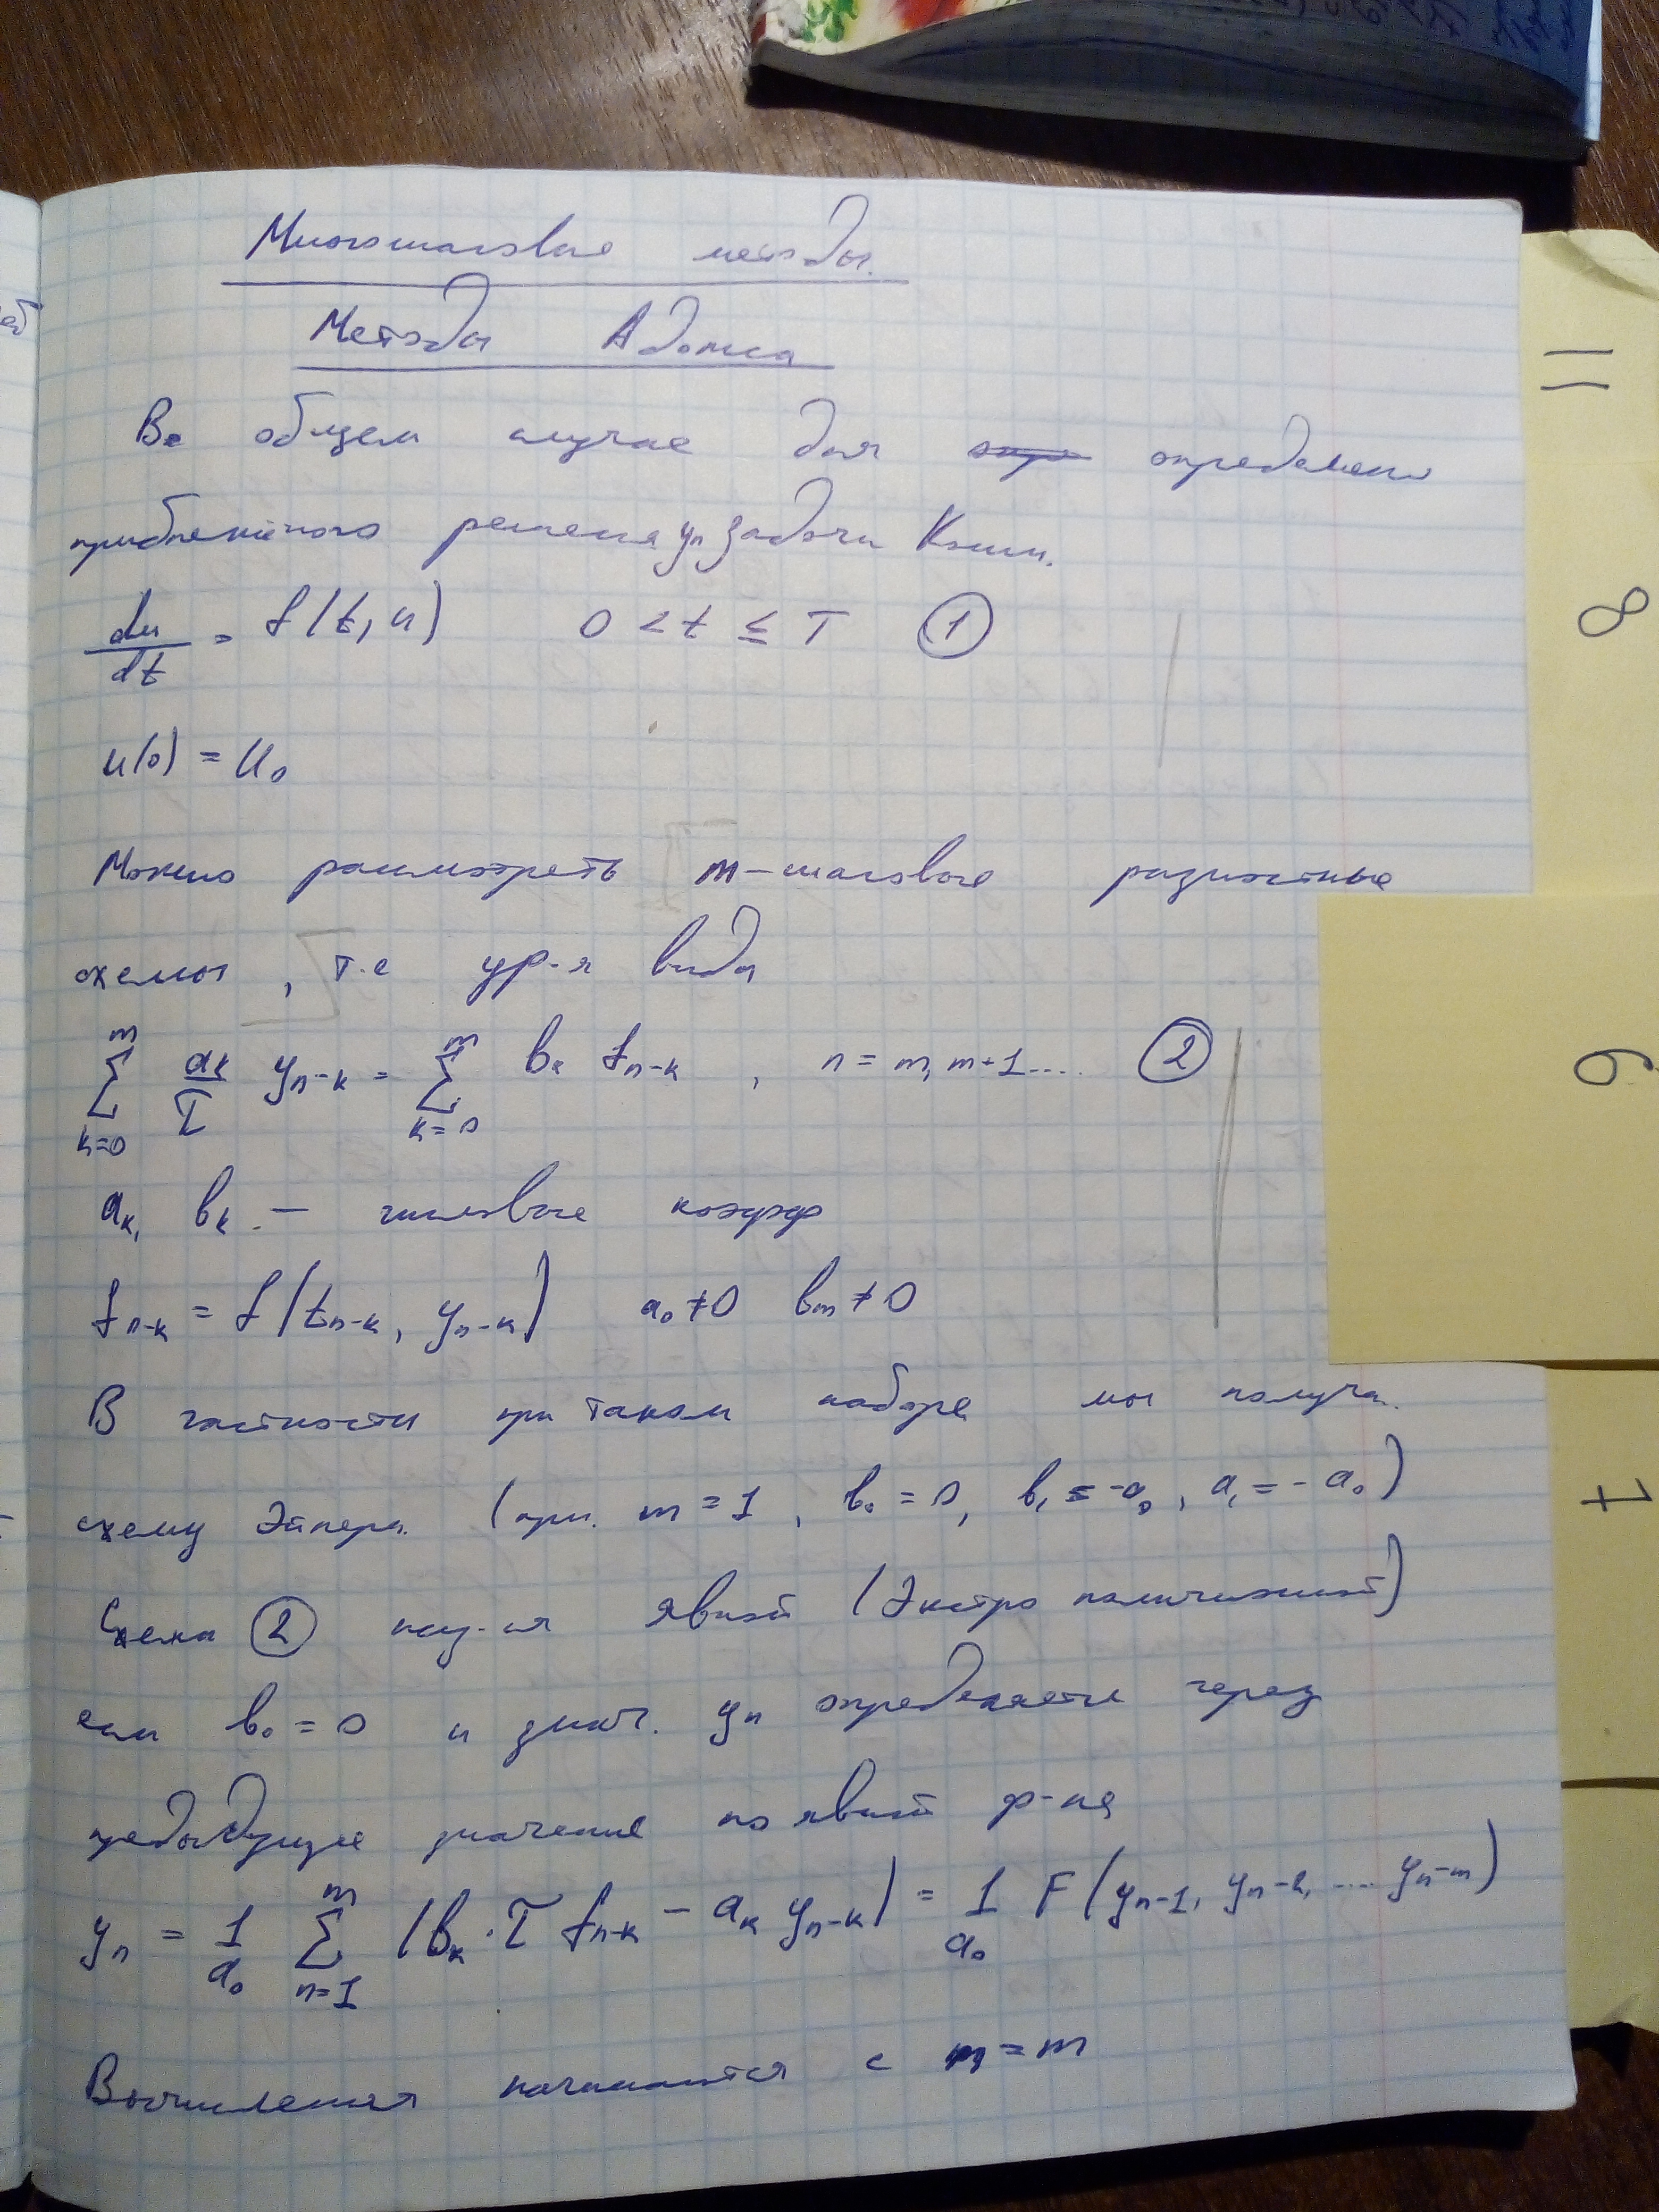 Многошаговые методы.
Методы Адамса
В общем случае для определения
приближённого решения yₙ задачи Коши.
du/dt = f(t, u) 0 < t ≤ T ①
u(0) = u₀
Можно рассмотреть m-шаговые разностные
схемы, т.е ур-я вида
∑_{k=0}^{m} a_k/τ y_{n-k} = ∑_{k=0}^{m} b_k f_{n-k}, n = m, m+1.... ②
a_k, b_k. — числовые коэфф
f_{n-k} = f(t_{n-k}, y_{n-k}) a₀ ≠ 0 b_m ≠ 0
В частности при таком наборе мы получ.
схему Эйлера. (при. m = 1, b₀ = 0, b₁ = -a₀, a₁ = -a₀)
Схема ② наз-ся явной (Экстро
если b₀ = 0 и знач. yₙ определяется через
предыдущие значение по явной ф-ле
yₙ = 1/a₀ ∑_{n=1}^{m} (b_k · τ f_{n-k} - a_k y_{n-k}) = 1/a₀ F(y_{n-1}, y_{n-2}, .... y_{n-m})
Вычисления начинаются с n = m
11
8
6
7